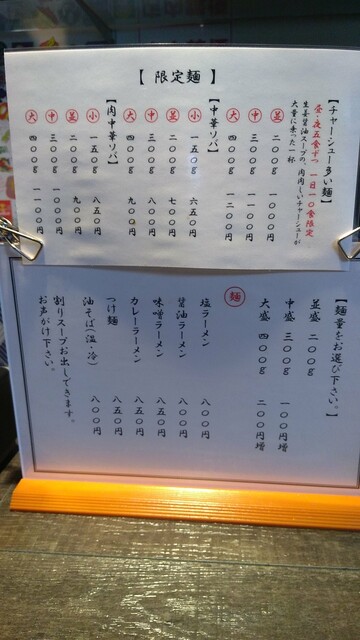 【限定麺】
【チャーシュー多い麺】
昼・夜五食ずつ 一日一〇食限定
生姜醤油スープの、肉肉しいチャーシューが
大量に乗った一杯
並 二〇〇g 一〇〇〇円
中 三〇〇g 一一〇〇円
大 四〇〇g 一二〇〇円
【中華ソバ】
小 一五〇g 六五〇円
並 二〇〇g 七〇〇円
中 三〇〇g 八〇〇円
大 四〇〇g 九〇〇円
【肉中華ソバ】
小 一五〇g 八五〇円
並 二〇〇g 九〇〇円
中 三〇〇g 一〇〇〇円
大 四〇〇g 一一〇〇円
【麺量をお選び下さい。】
並盛 二〇〇g
中盛 三〇〇g 一〇〇円増
大盛 四〇〇g 二〇〇円増
麺
塩ラーメン 八〇〇円
醤油ラーメン 八〇〇円
味噌ラーメン 八五〇円
カレーラーメン 八五〇円
つけ麺 八五〇円
油そば(温・冷) 八〇〇円
割りスープお出しできます。
お声がけ下さい。